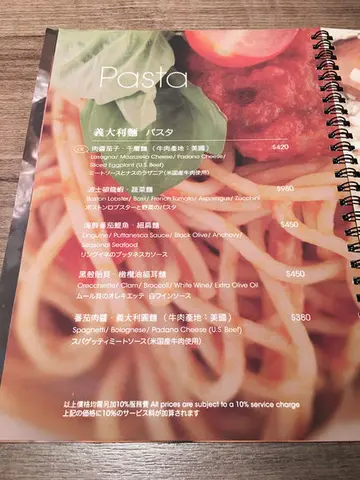 Pasta
義大利麵 パスタ
肉醬茄子．千層麵（牛肉產地：美國） $420
Lasagna/ Mozzarella Cheese/ Padano Cheese/
Sliced Eggplant (U.S. Beef)
ミートソースとナスのラザニア (米国産牛肉使用)
波士頓龍蝦．蔬菜麵 $980
Boston Lobster/ Basil/ French Tomato/ Asparagus/ Zucchini
ボストンロブスターと野菜のパスタ
海鮮番茄鯷魚．細扁麵 $450
Linguine/ Puttanesca Sauce/ Black Olive/ Anchovy/
Seasonal Seafood
リングイネのプッタネスカソース
黑殼貽貝．橄欖油貓耳麵 $450
Orecchiette/ Clam/ Broccoli/ White Wine/ Extra Olive Oil
ムール貝のオレキエッテ 白ワインソース
蕃茄肉醬．義大利圓麵（牛肉產地：美國） $380
Spaghetti/ Bolognese/ Padano Cheese (U.S. Beef)
スパゲッティミートソース(米国産牛肉使用)
以上價格均需另加10%服務費 All prices are subject to a 10% service charge
上記の価格に10%のサービス料が加算されます